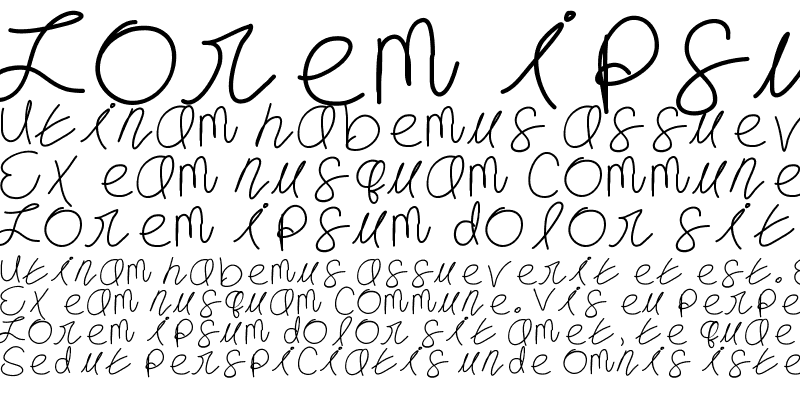 Lorem ipsu
Utinam habemus assuev
Ex eam nusquam Commune
Lorem ipsum dolor sit
Utinam habemus assueverit et est. E
Ex eam nusquam Commune. Vis eu perpe
Lorem ipsum dolor sit amet, te quae
Sed ut perspiciatis unde omnis iste